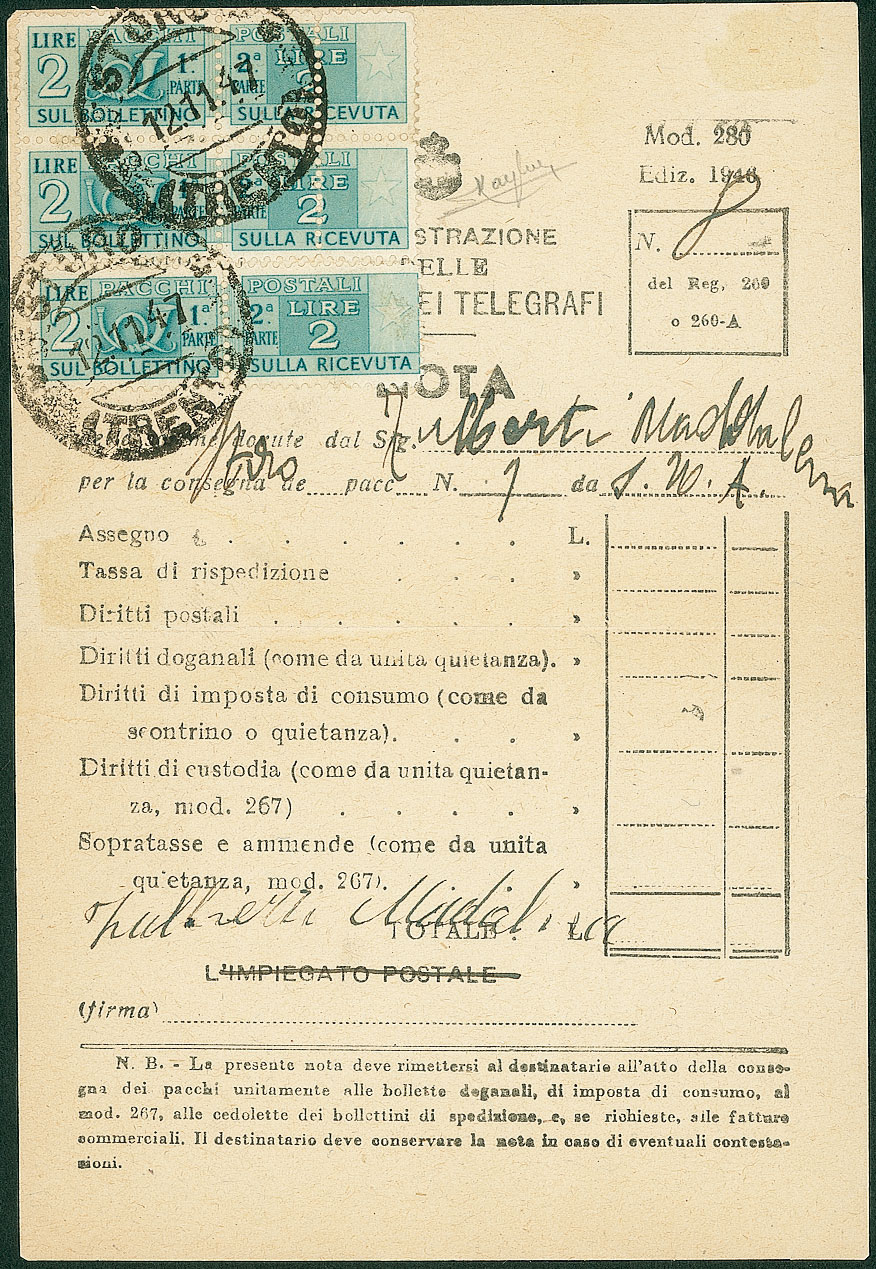 LIRE PACCHI POSTALI
2 1ª PARTE 2ª PARTE LIRE 2
SUL BOLLETTINO SULLA RICEVUTA
LIRE PACCHI POSTALI
2 1ª PARTE 2ª PARTE LIRE 2
SUL BOLLETTINO SULLA RICEVUTA
LIRE PACCHI POSTALI
2 1ª PARTE 2ª PARTE LIRE 2
SUL BOLLETTINO SULLA RICEVUTA
STORO
12.11.47
(TRENTO)
STORO
12.11.47
(TRENTO)
Mod. 280
Ediz. 1946
N.
del Reg, 260
o 260-A
STRAZIONE
DELLE
EI TELEGRAFI
NOTA
dovute dal Sig. Alberti Maddalena
Storo
per la consegna de pacc N. 1 da S. U. A.
Assegno . . . . . . L.
Tassa di rispedizione . . . »
Diritti postali . . . . . »
Diritti doganali (come da unita quietanza). »
Diritti di imposta di consumo (come da
scontrino o quietanza). . . »
Diritti di custodia (come da unita quietan-
za, mod. 267) . . . . »
Sopratasse e ammende (come da unita
quietanza, mod. 267). »
TOTALE . L.
L'IMPIEGATO POSTALE
(firma)
N. B. - La presente nota deve rimettersi al destinatario all'atto della conse-
gna dei pacchi unitamente alle bollette doganali, di imposta di consumo, al
mod. 267, alle cedolette dei bollettini di spedizione, e, se richieste, alle fatture
commerciali. Il destinatario deve conservare la nota in caso di eventuali contesta-
zioni.